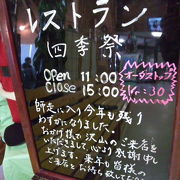 レストラン
四季祭
Open 11:00
Close 15:00
オーダーストップ
14:30
師走に入り今年も残り
わずかになりました。
おかげ様で沢山のご来店を
いただきまして、心より感謝申し
上げます。来年も皆様の
ご来店をお待ち致しており